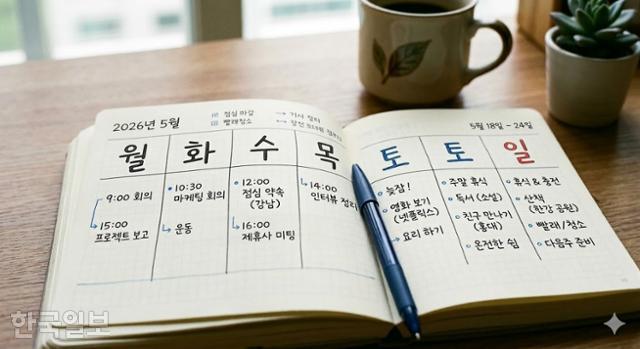 2026년 5월
점심 마감
빨래청소
5월 18일 - 24일
월 화 수 목 토 토 일
9:00 회의
15:00
프로젝트 보고
10:30
마케팅 회의
운동
12:00
점심 약속
(강남)
16:00
제휴사 미팅
14:00
인터뷰 정리
늦잠!
영화 보기
(넷플릭스)
요리 하기
주말 휴식
독서 (소설)
친구 만나기
(홍대)
온전한 쉼
휴식 & 충전
산책
(한강 공원)
빨래/청소
다음주 준비
한국일보